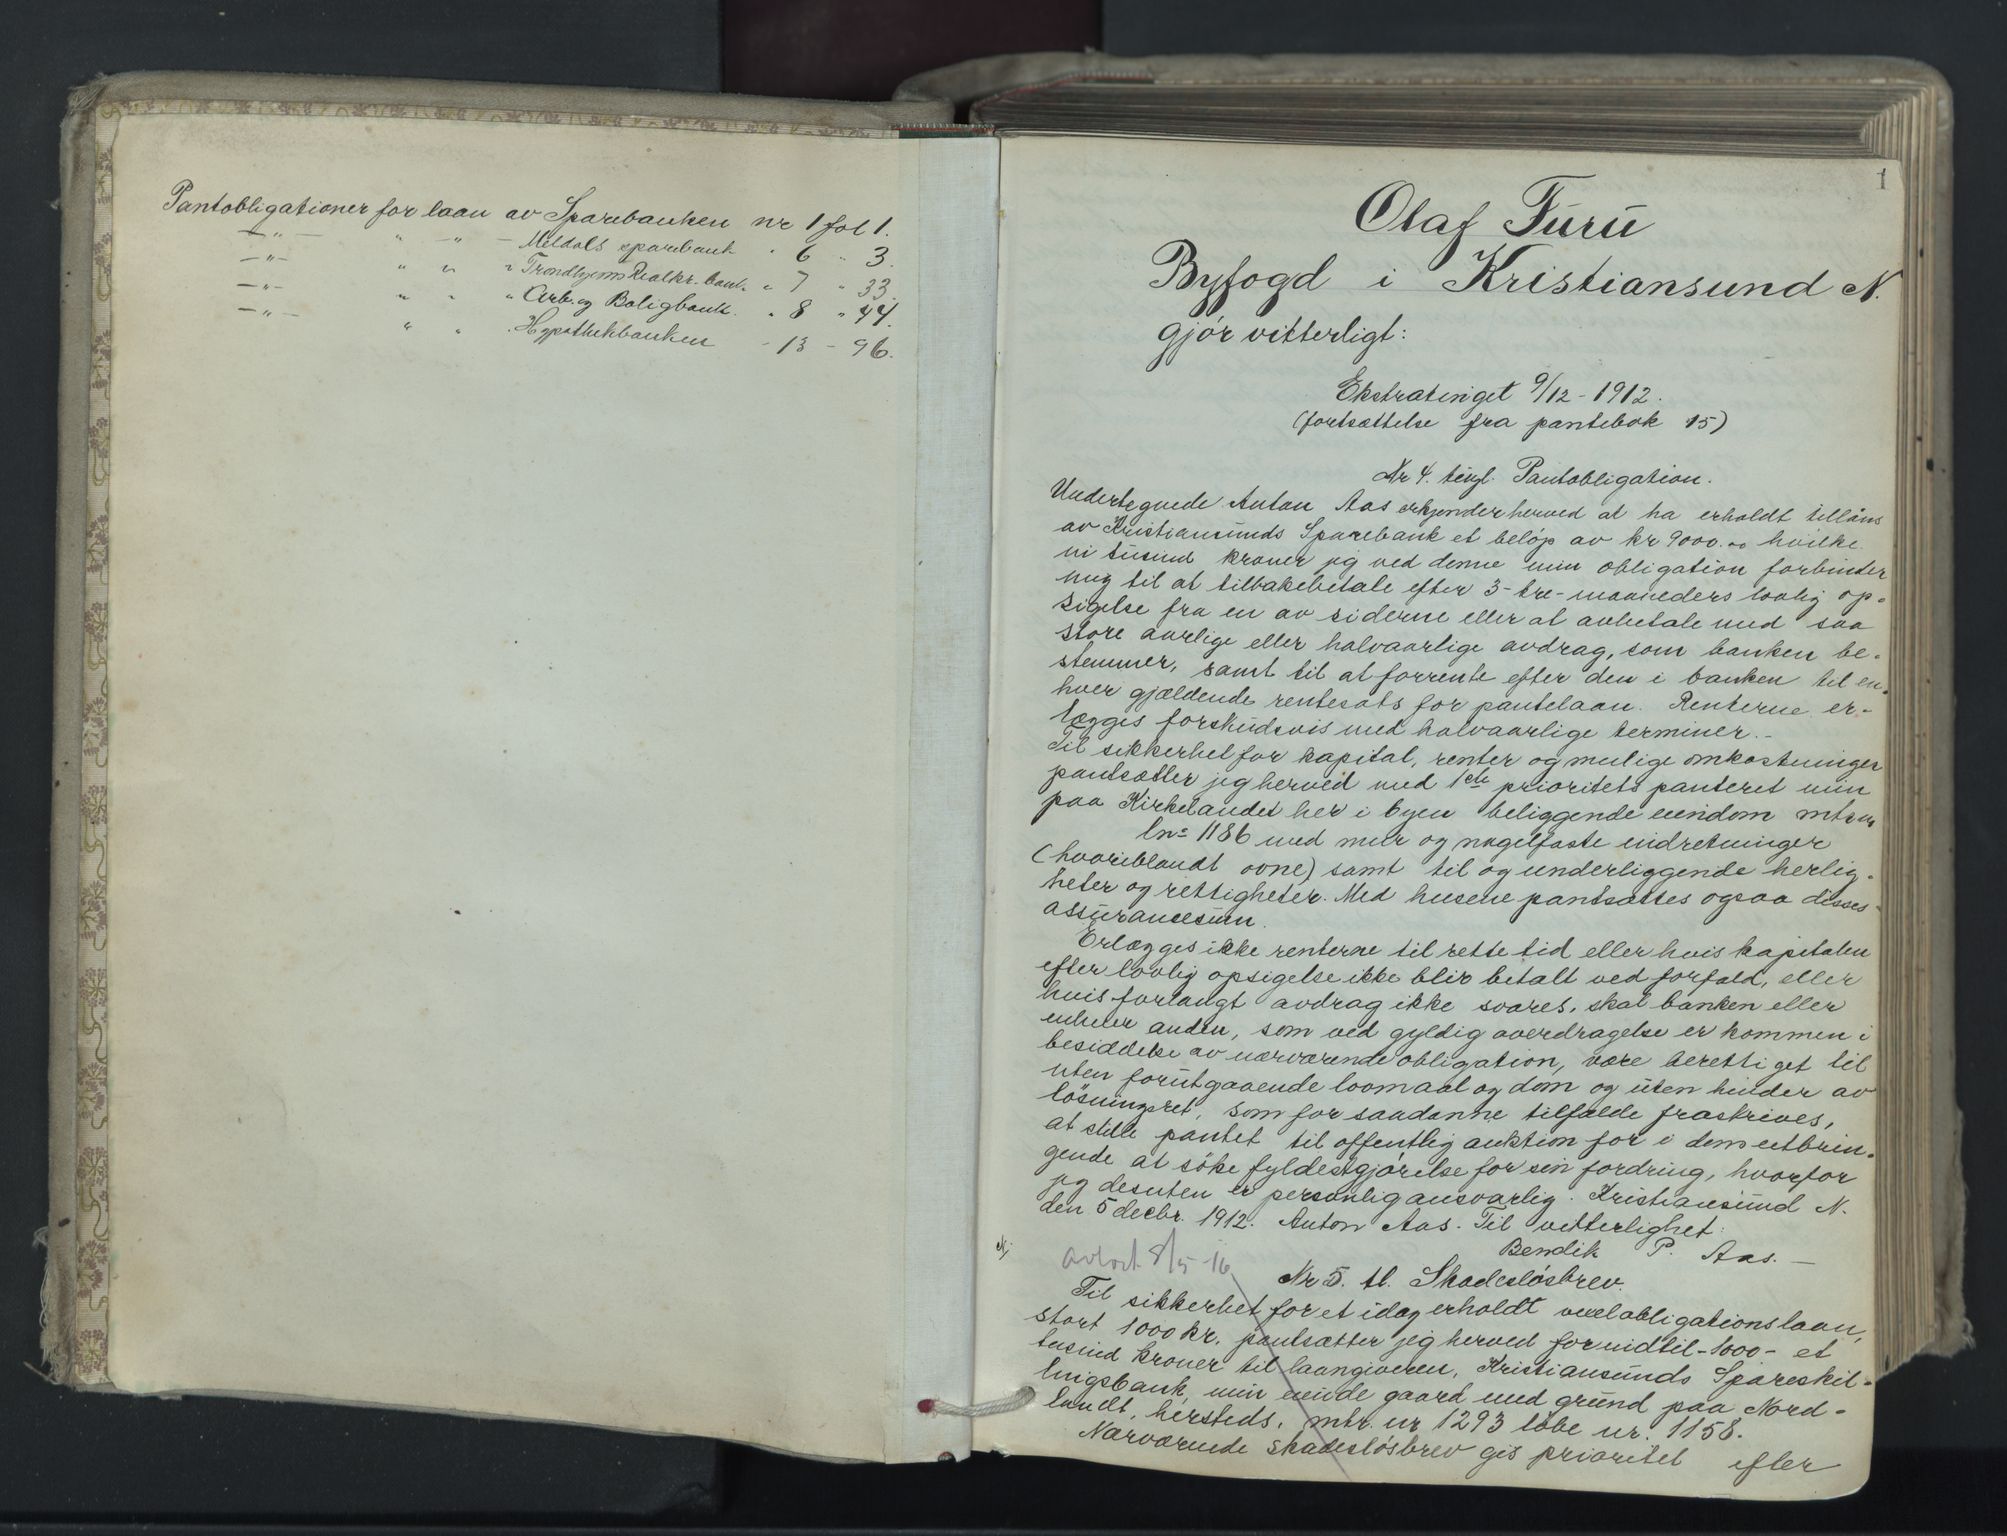 Pantobligationer for laan av Sparebanken nr 1 fol 1.
— " — " — " — Meldals sparebank " 6 " 3.
— " — " " " Trondhjems Realkr. bank " 7 " 33.
— " — " " " Arb. og Boligbank. " 8 " 44.
— " — " " " Hypothekbanken - 13 - 96.
1
Olaf Furu
Byfogd i Kristiansund N.
gjør vitterligt:
Ekstratinget 9/12 - 1912.
(fortsættelse fra pantebok 15)
Nr 4. tingl. Pantobligation.
Undertegnede Anton Aas erkjender herved at ha erholdt tillåns
av Kristiansunds Sparebank et beløp av kr 9000.00 hvilke
ni tusind kroner jeg ved denne min obligation forbinder
mig til at tilbakebetale efter 3-tre-maaneders lovlig op-
sigelse fra en av siderne eller at avbetale med saa
store aarlige eller halvaarlige avdrag, som banken be-
stemmer, samt til at forrente efter den i banken til en-
hver gjældende rentesats for pantelaan. Renterne er-
lægges forskudsvis med halvaarlige terminer. -
Til sikkerhet for kapital, renter og mulige omkostninger
pantsætter jeg herved med 1ste prioritets panteret min
paa Kirkelandet her i byen beliggende eiendom mtr. nr
lnr 1186 med mur og nagelfaste indretninger
(hvoriblandt ovne) samt til og underliggende herlig-
heter og rettigheter. Med husene pantsættes ogsaa disses
assurancesum.
Erlægges ikke renterne til rette tid eller hvis kapitalen
efter lovlig opsigelse ikke blir betalt ved forfald, eller
hvis forlangt avdrag ikke svares, skal banken eller
enhver anden, som ved gyldig overdragelse er kommen i
besiddelse av nærværende obligation, være berettiget til
uten forutgaaende lovmaal og dom og uten hinder av
løsningsret, som for saadanne tilfælde fraskrives,
at stille pantet til offentlig auktion for i dens utbrin-
gende at søke fyldestgjørelse for sin fordring, hvorfor
jeg desuten er personlig ansvarlig. Kristiansund N.
den 5 decbr. 1912. Anton Aas. Til vitterlighet:
Bendik P. Aas. —
avlæst 8/5 - 16
Nr 5. tl. Skadesløsbrev.
Til sikkerhet for et idag erholdt vexelobligationslaan,
stort 1000 kr. pantsætter jeg herved for indtil - 1000 - et
tusind kroner til laangiveren, Kristiansunds Spareskil-
lingsbank, min eiende gaard med grund paa Nord-
landt, hersteds, mtr. nr 1293 løbe nr. 1158.
Nærværende skadesløsbrev gis prioritet efter